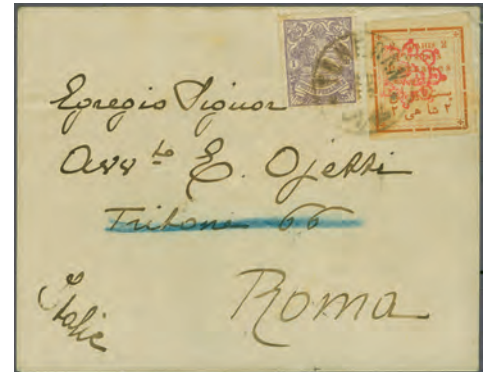 Egregio Signor
Avv to E. Ojetti
Tritone 66
Roma
Italie